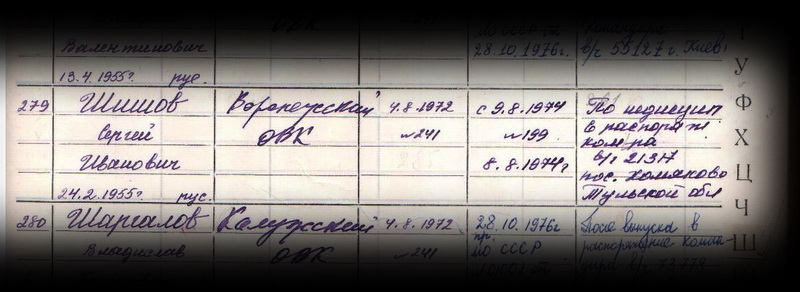 Валентинович
28.10.1976г.
в/ч 55127 г. Киев
13.4.1955г. рус.
279 Шишов Воронежский 4.8.1972 с 9.8.1974 По недисцип
Сергей ОВК №241 №199 в распоряж
Иванович 8.8.1974г ком-ра
в/ч 21317
пос. Хомяково
24.2.1955г. рус. Тульской обл
280 Шаргалов Калужский 4.8.1972 28.10.1976г После выпуска в
Владислав ОВК №241 пр. МО СССР распоряжение
У
Ф
Х
Ц
Ч
Ш